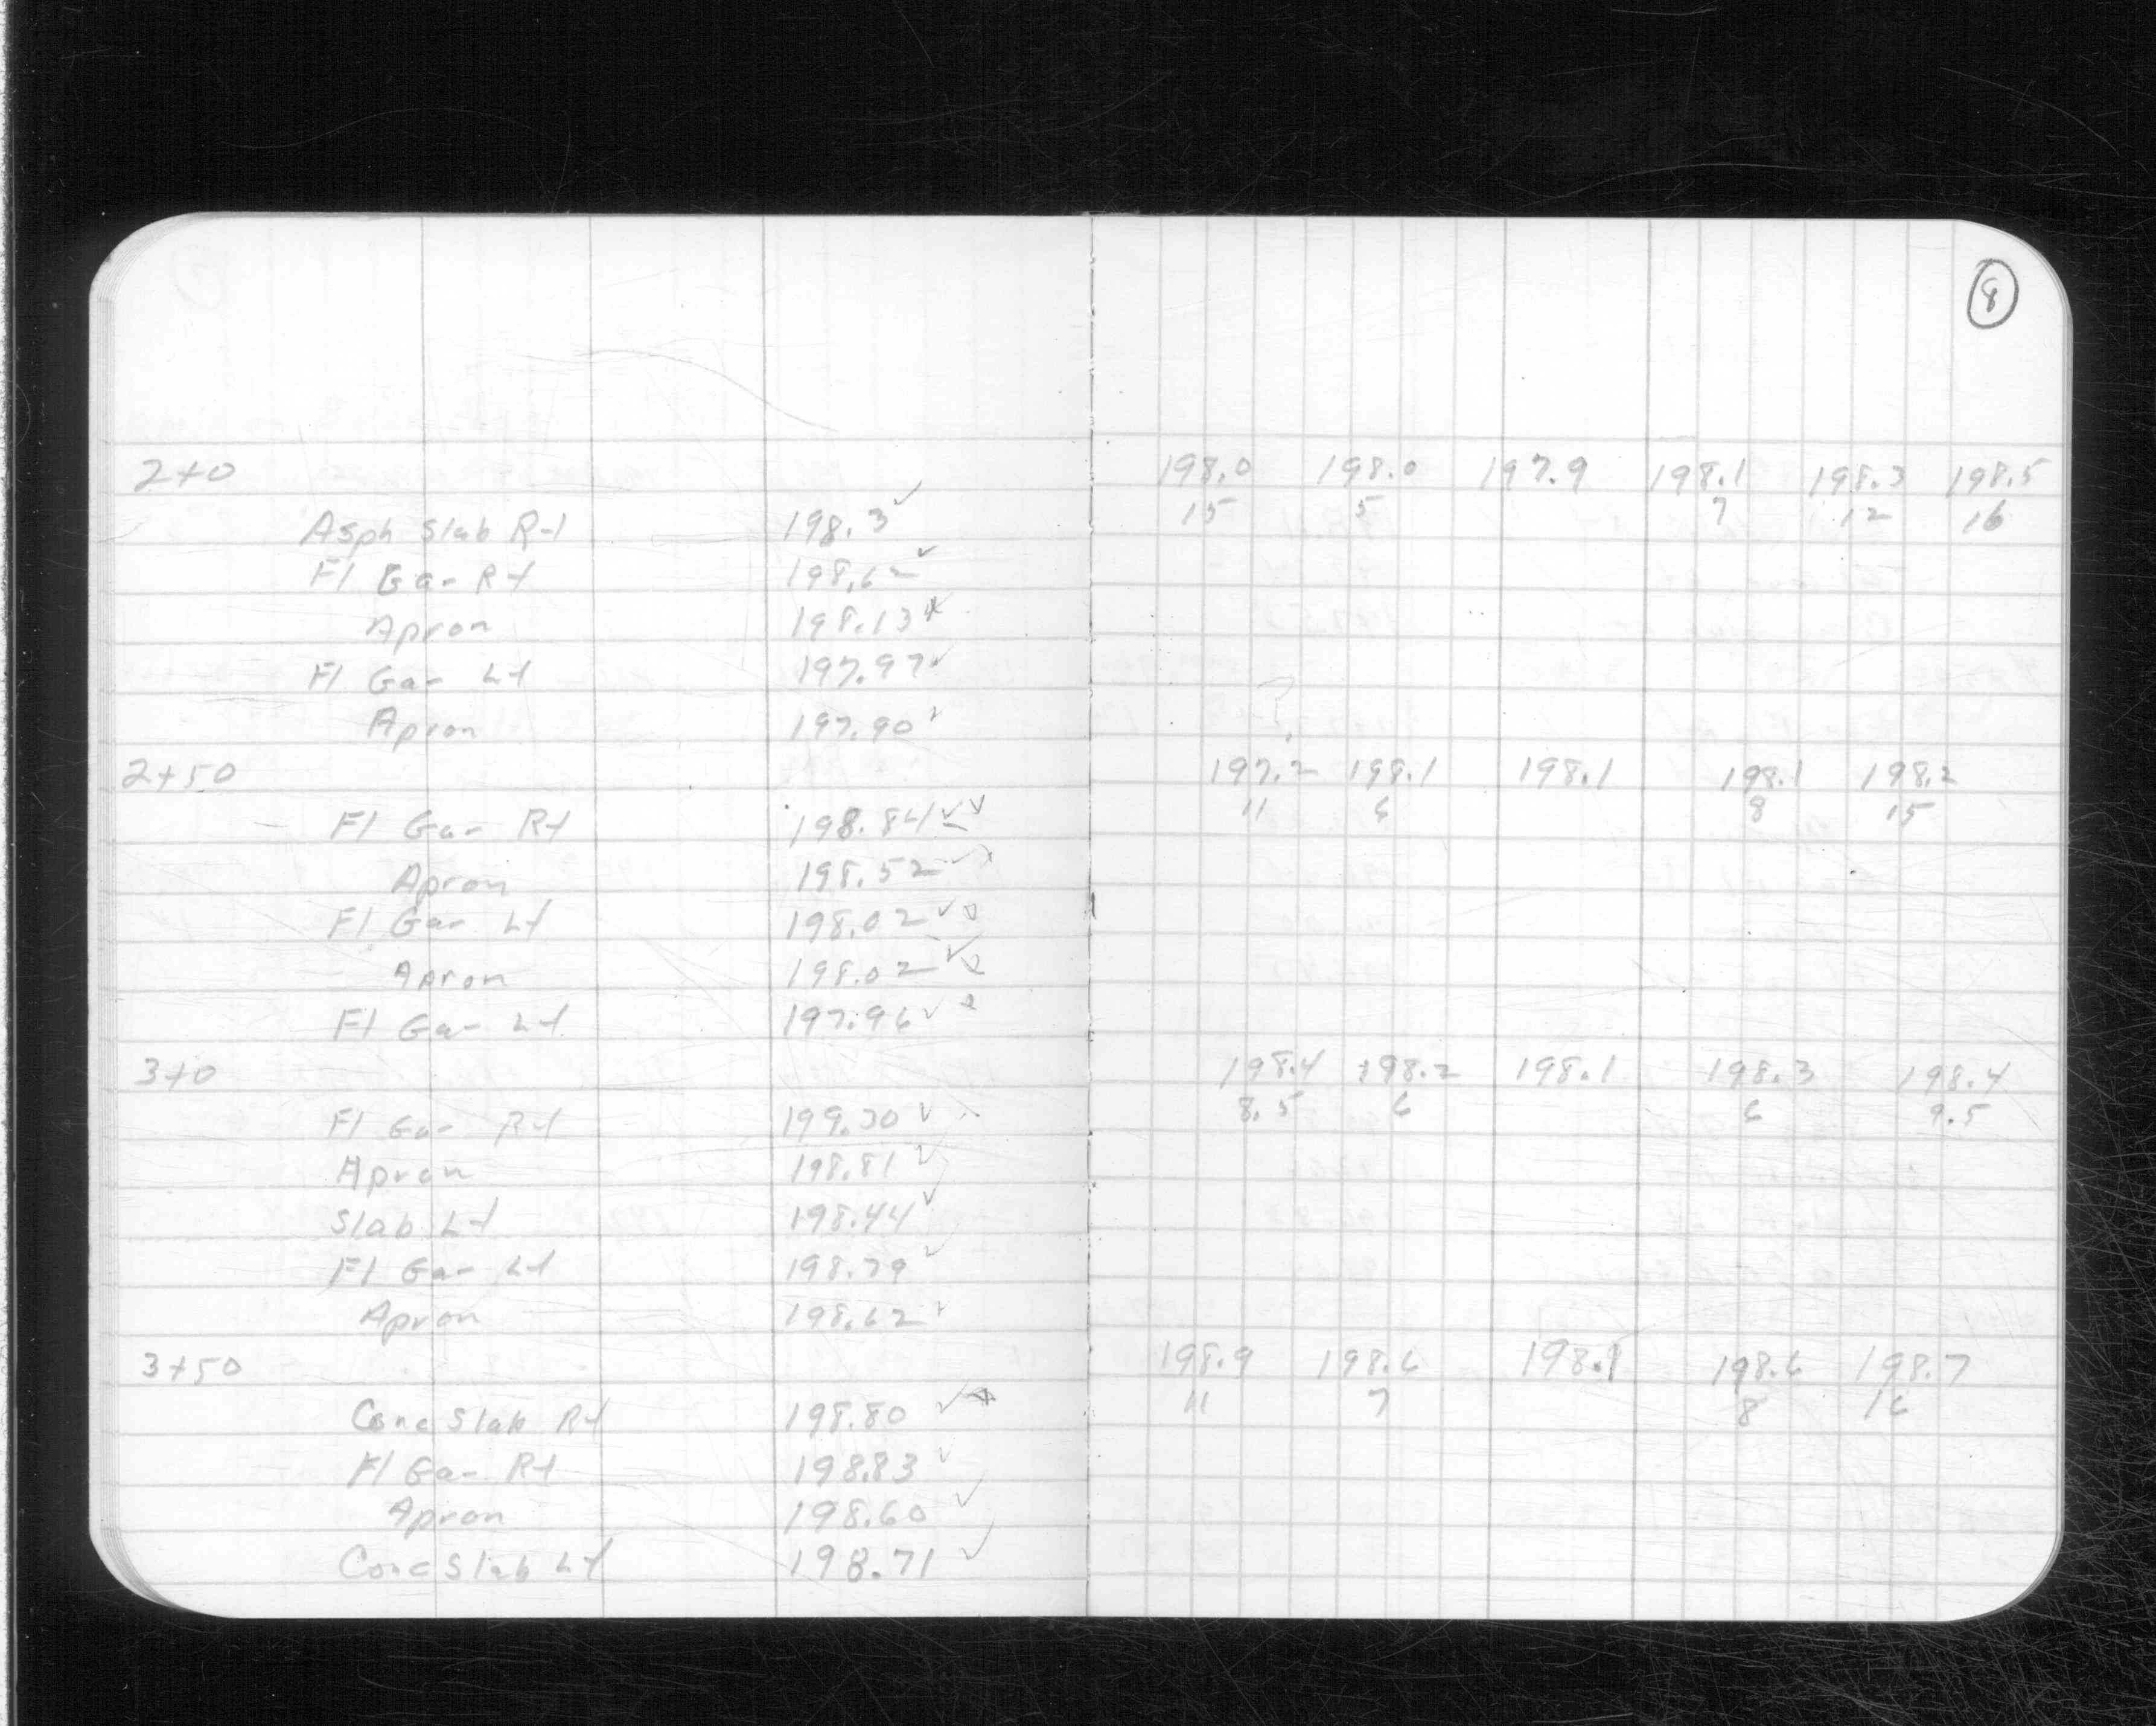 8
2+0 198.0 198.0 197.9 198.1 198.3 198.5
15 5 7 12 16
Asph Slab Rt 198.3 ✓
Fl Gar Rt 198.62 ✓
Apron 198.13
Fl Gar Lt 197.97 ✓
Apron 197.90 ✓
2+50 197.2 198.1 198.1 198.1 198.2
11 6 8 15
Fl Gar Rt 198.84 ✓✓
Apron 198.52 ✓
Fl Gar Lt 198.02 ✓
Apron 198.02 ✓
Fl Gar Lt 197.96 ✓
3+0 198.4 198.2 198.1 198.3 198.4
8.5 6 6 9.5
Fl Gar Rt 199.30 ✓
Apron 198.81 ✓
Slab Lt 198.44 ✓
Fl Gar Lt 198.79 ✓
Apron 198.62 ✓
3+50 198.9 198.6 198.9 198.6 198.7
11 7 8 16
Conc Slab Rt 198.80 ✓
Fl Gar Rt 198.83 ✓
Apron 198.60 ✓
Conc Slab Lt 198.71 ✓